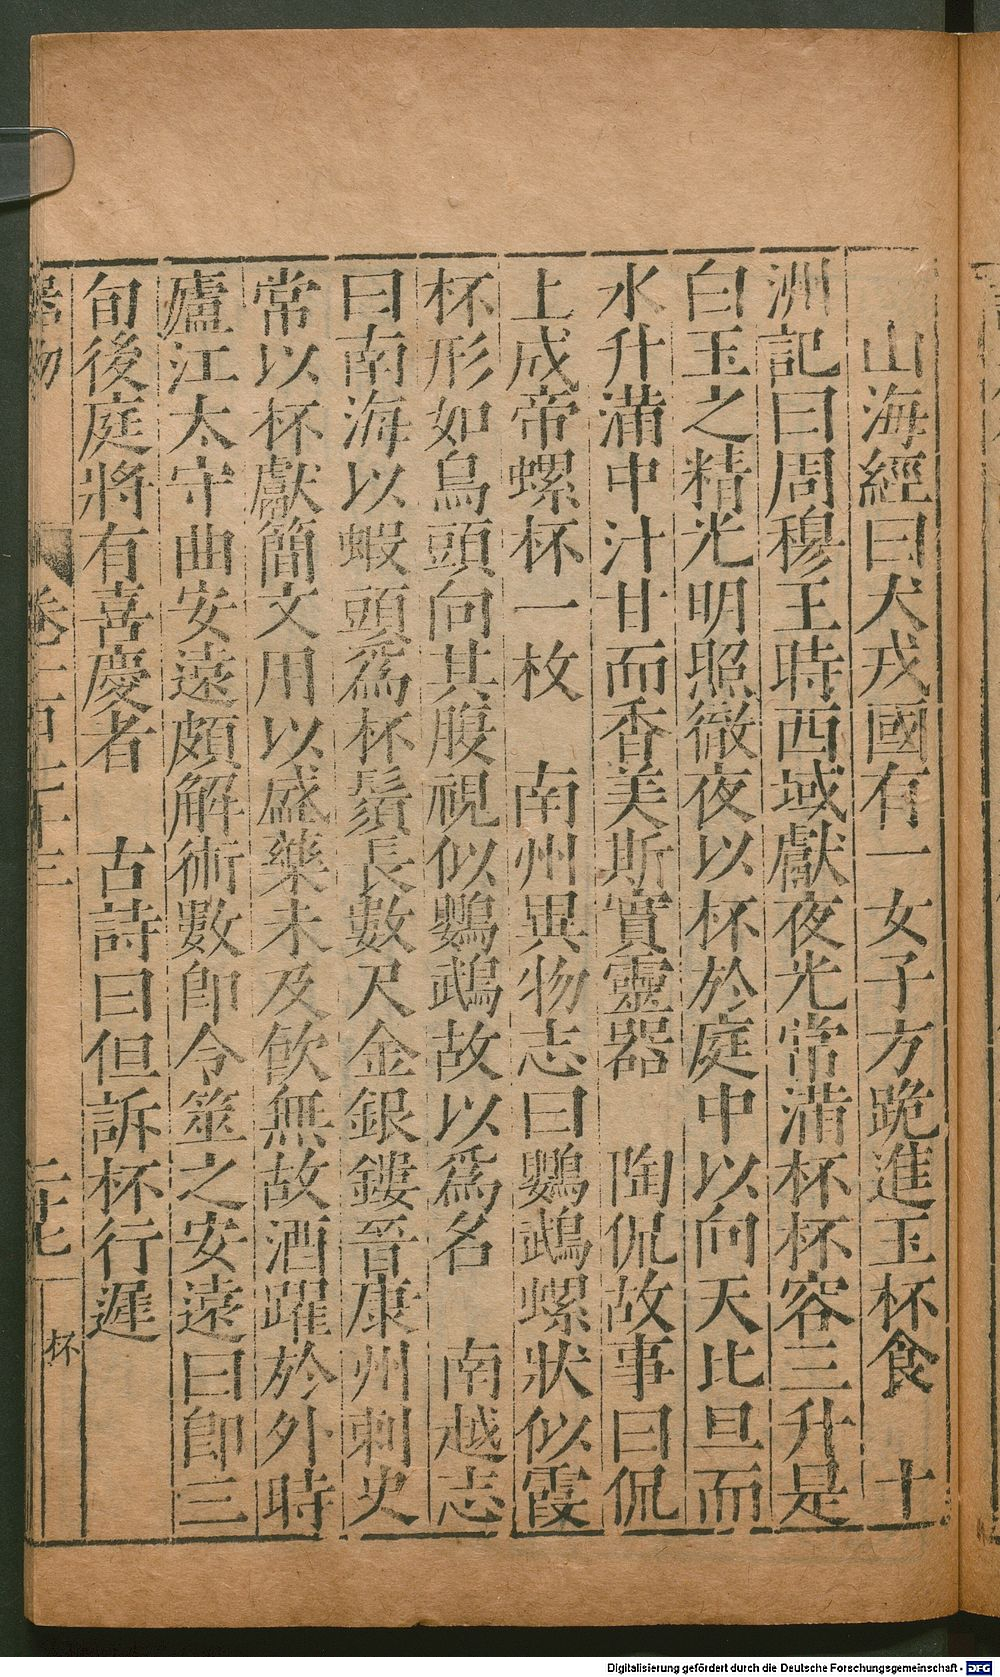 山海經曰犬戎國有一女子方跪進玉杯食　十
洲記曰周穆王時西域獻夜光常滿杯杯容三升是
白玉之精光明照徹夜以杯於庭中以向天比旦而
水升滿中汁甘而香美斯實靈器　陶侃故事曰侃
上成帝螺杯一枚　南州異物志曰鸚鵡螺狀似霞
杯形如鳥頭向其腹視似鸚鵡故以爲名　南越志
曰南海以蝦頭爲杯鬚長數尺金銀鏤晉康州刺史
常以杯獻簡文用以盛藥未及飲無故酒躍於外時
廬江太守曲安遠頗解術數即令筮之安遠曰即三
旬後庭將有喜慶者　古詩曰但訴杯行遲
器物　卷　三　杯
Digitalisierung gefördert durch die Deutsche Forschungsgemeinschaft - DFG